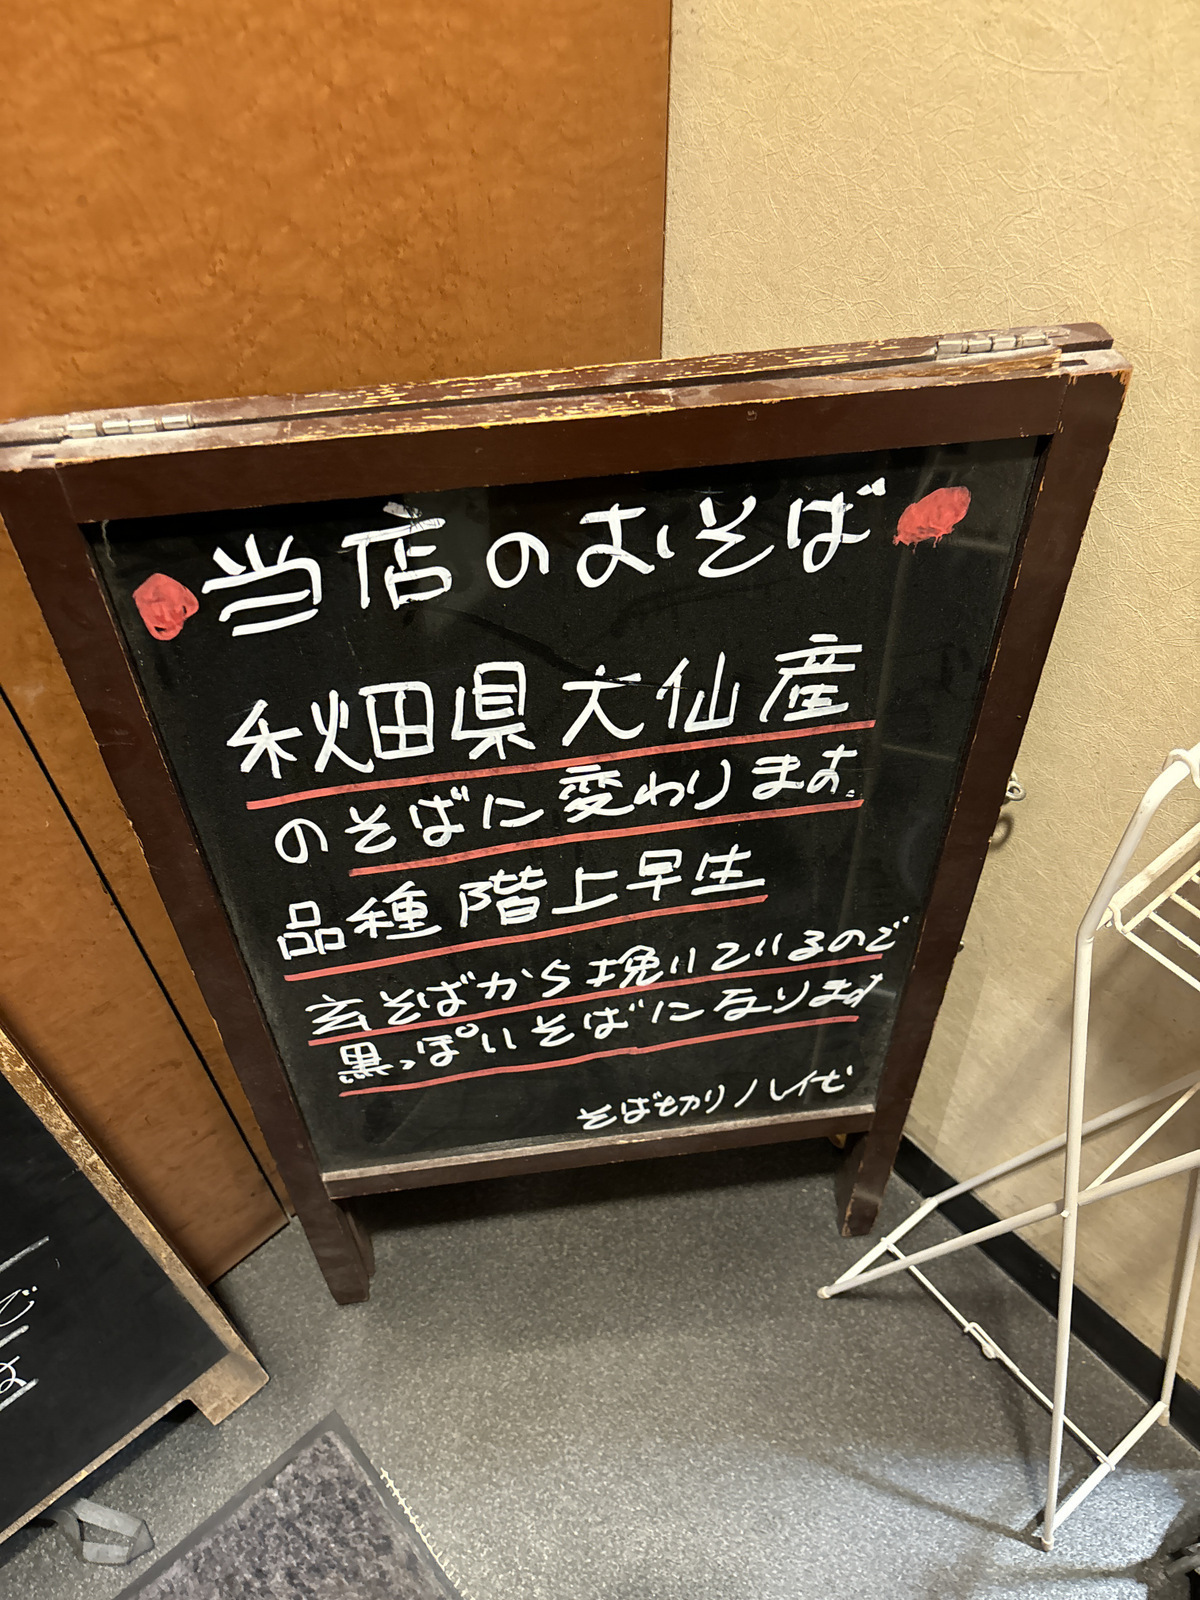 当店のおそば
秋田県大仙産
のそばに変わります。
品種階上早生
玄そばから挽いているので
黒っぽいそばになります
そば切り八代
で
は